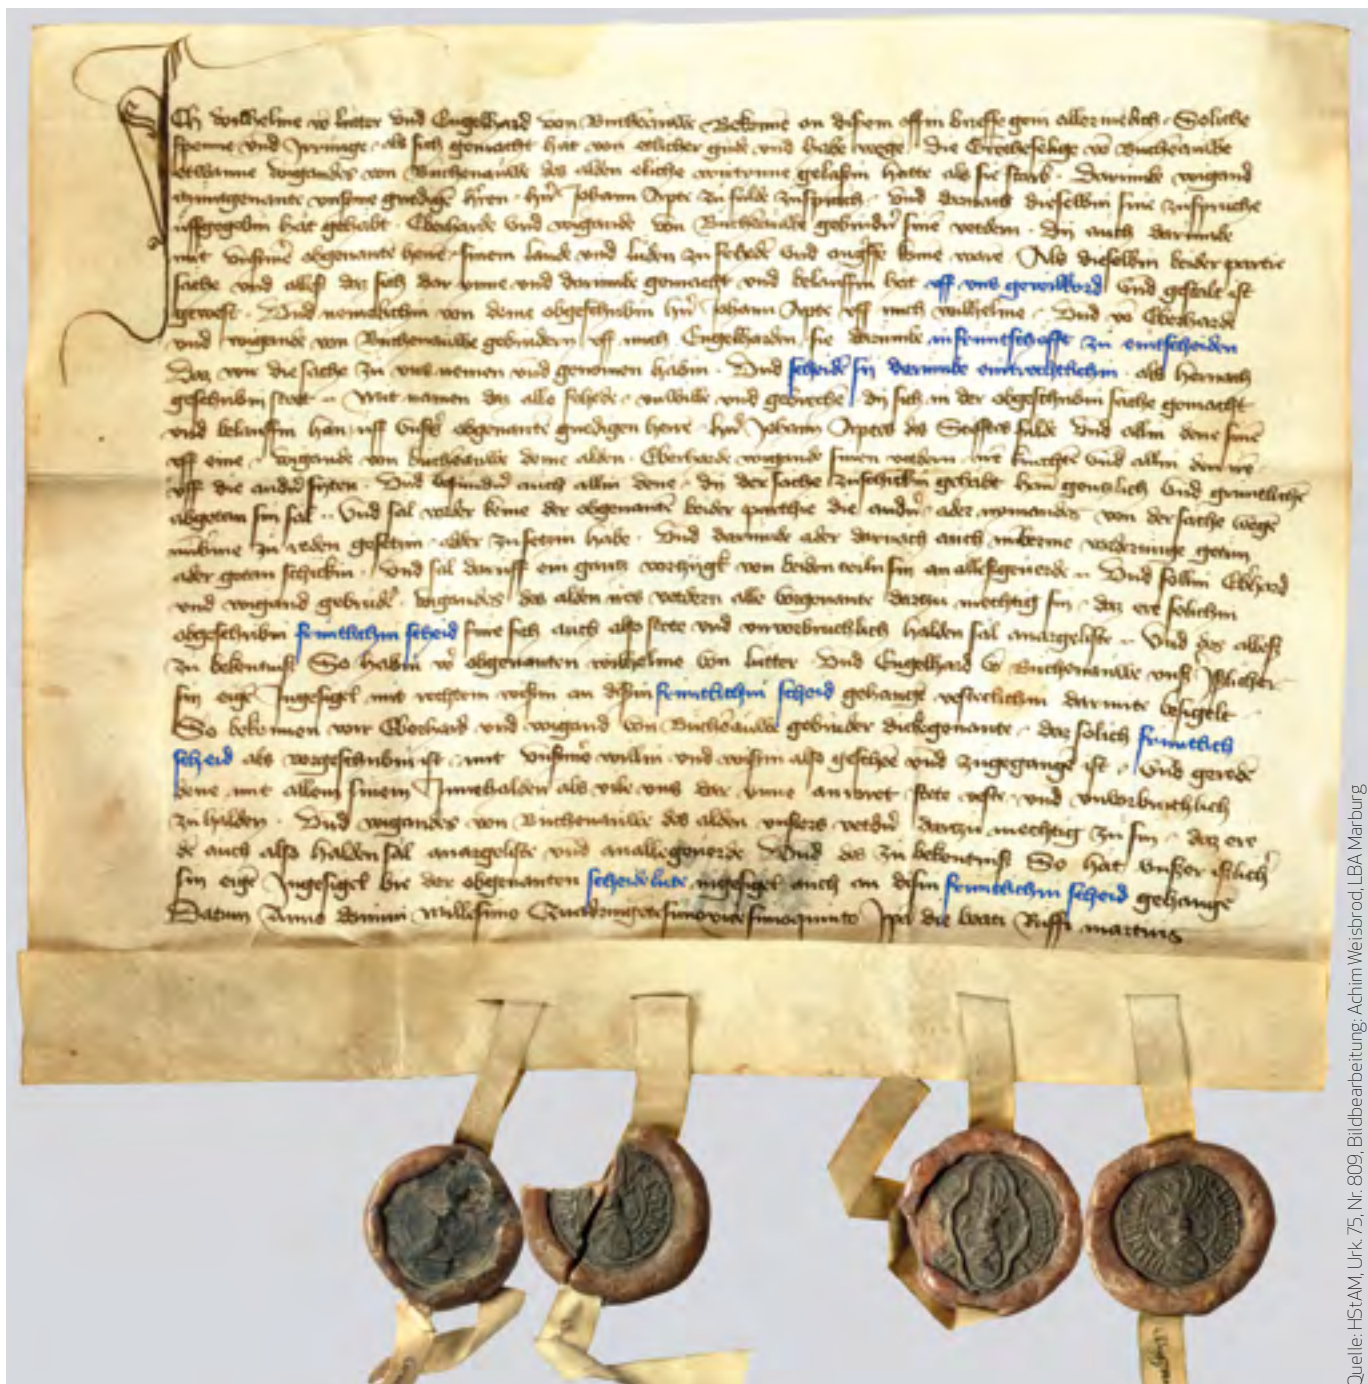 Ich Wilhelme vo lutter vnd Engelhard von Buchenauwe Bekenne an disem offin brieffe gein allermelich Soliche
spenne vnd Irrunge als sich gemacht hat von etlicher gude vnd habe wege die vo Buchenauwe
etwanne wigandes von Buchenauwe des alden eliche gelasin hatte als sie starb Darumbe wigand
vnsme gnedigen hern hern Johann Apte zu fulde zusprach vnd darnach dieselbin sine zuspruche
uffgegebin hat gehabt Eberharde vnd wigande von Buchenauwe gebrudirn sine vetdern Dy auch darumbe
mit vnsme obgenante herre sinem lande vnd luden zu fehede vnd kome ware Als dieselbin beider partie
sache vnd alles das sich dar vnne vnd darumbe gemacht vnd belauffin hat uff vns gewilkord vnd gestalt ist
gewest Vnd nemelichin von deme obgeschribin hern Johann Apte uff mich wilhelme Vnd vo Eberharde
vnd wigande von Buchenauwe gebrudern uff mich Engelharden sie darumbe in fruntschafft zu entscheiden
Daz wir die sache zu vns nemen vnd genomen habin Vnd scheide sy darumbe eintrechtlichin als hernach
geschribin stet Mit namen daz alle fehede vnwille vnd gebreche dy sich in der obgeschribin sache gemacht
vnd belauffin han uff vnsers obgenante gnedigen herre hern Johann Aptes des Stifftes fulde vnd allin dene sine
uff eine wigande von buchenauwe deme alden Eberharde wigande sinen vetdern ire knechte vnd allin den ire
uff die andirn syten Vnd auch allin dene dy der sache zuschickin gehabt han gentzlich vnd gruntliche
abgetan sin sal Vnd sal wider keine der obgenante beider parthie die andir ader nymandes von der sache wege
zu reden gesetzin ader zusetzin habe Vnd darumbe ader darnach auch getun
ader getan schickin Vnd sal daruff ein gantz vortzigk von beiden teiln sin an allesgeuerde Vnd sollin Ebirhard
vnd wigand gebrudir wigandes des alden ires vetdern alle vorgenante dartzu mechtig sin daz ere solichin
obgeschribin fruntlichin scheid fure sich auch also stete vnd vnvorbruchlich halden sal anargeliste Vnd des alles
zu bekentnis So habin wir obgenanten wilhelme von lutter Vnd Engelhard vo Buchenauwe vnsir iglicher
sin eige Ingesigel mit rechtem wisin an disin fruntlichin scheid gehange vestecliehin darmite besigelt
So bekennen wir Eberhard vnd wigand von Buchenauwe gebruder dickegenante daz solich fruntlich
scheid als vorgeschribin ist mit vnsirme willin vnd wisin also geschee vnd zugegange ist Vnd gerede
deme mit allem sinem Innehalden als vile vns dar vnne stete veste vnd vnvorbruchlich
zuhalden Vnd wigandes von Buchenauwe des alden vnsers vetdirn dartzu mechtig zu sin daz ere
de auch also halden sal anargeliste vnd anallegeuerde Vnd des zu bekentnis So hat vnsser iglich
sin eige Ingesigel bie der obgenanten scheidelute ingesigel auch an disin fruntlichin scheid gehange
Datum Anno domini Millesimo Quadringentesimo vicesimoquinto Ipso die beati Ruffi martiris
Quelle: HStAM, Urk. 75, Nr. 809, Bildbearbeitung: Achim Weisbrod, LBA Marburg